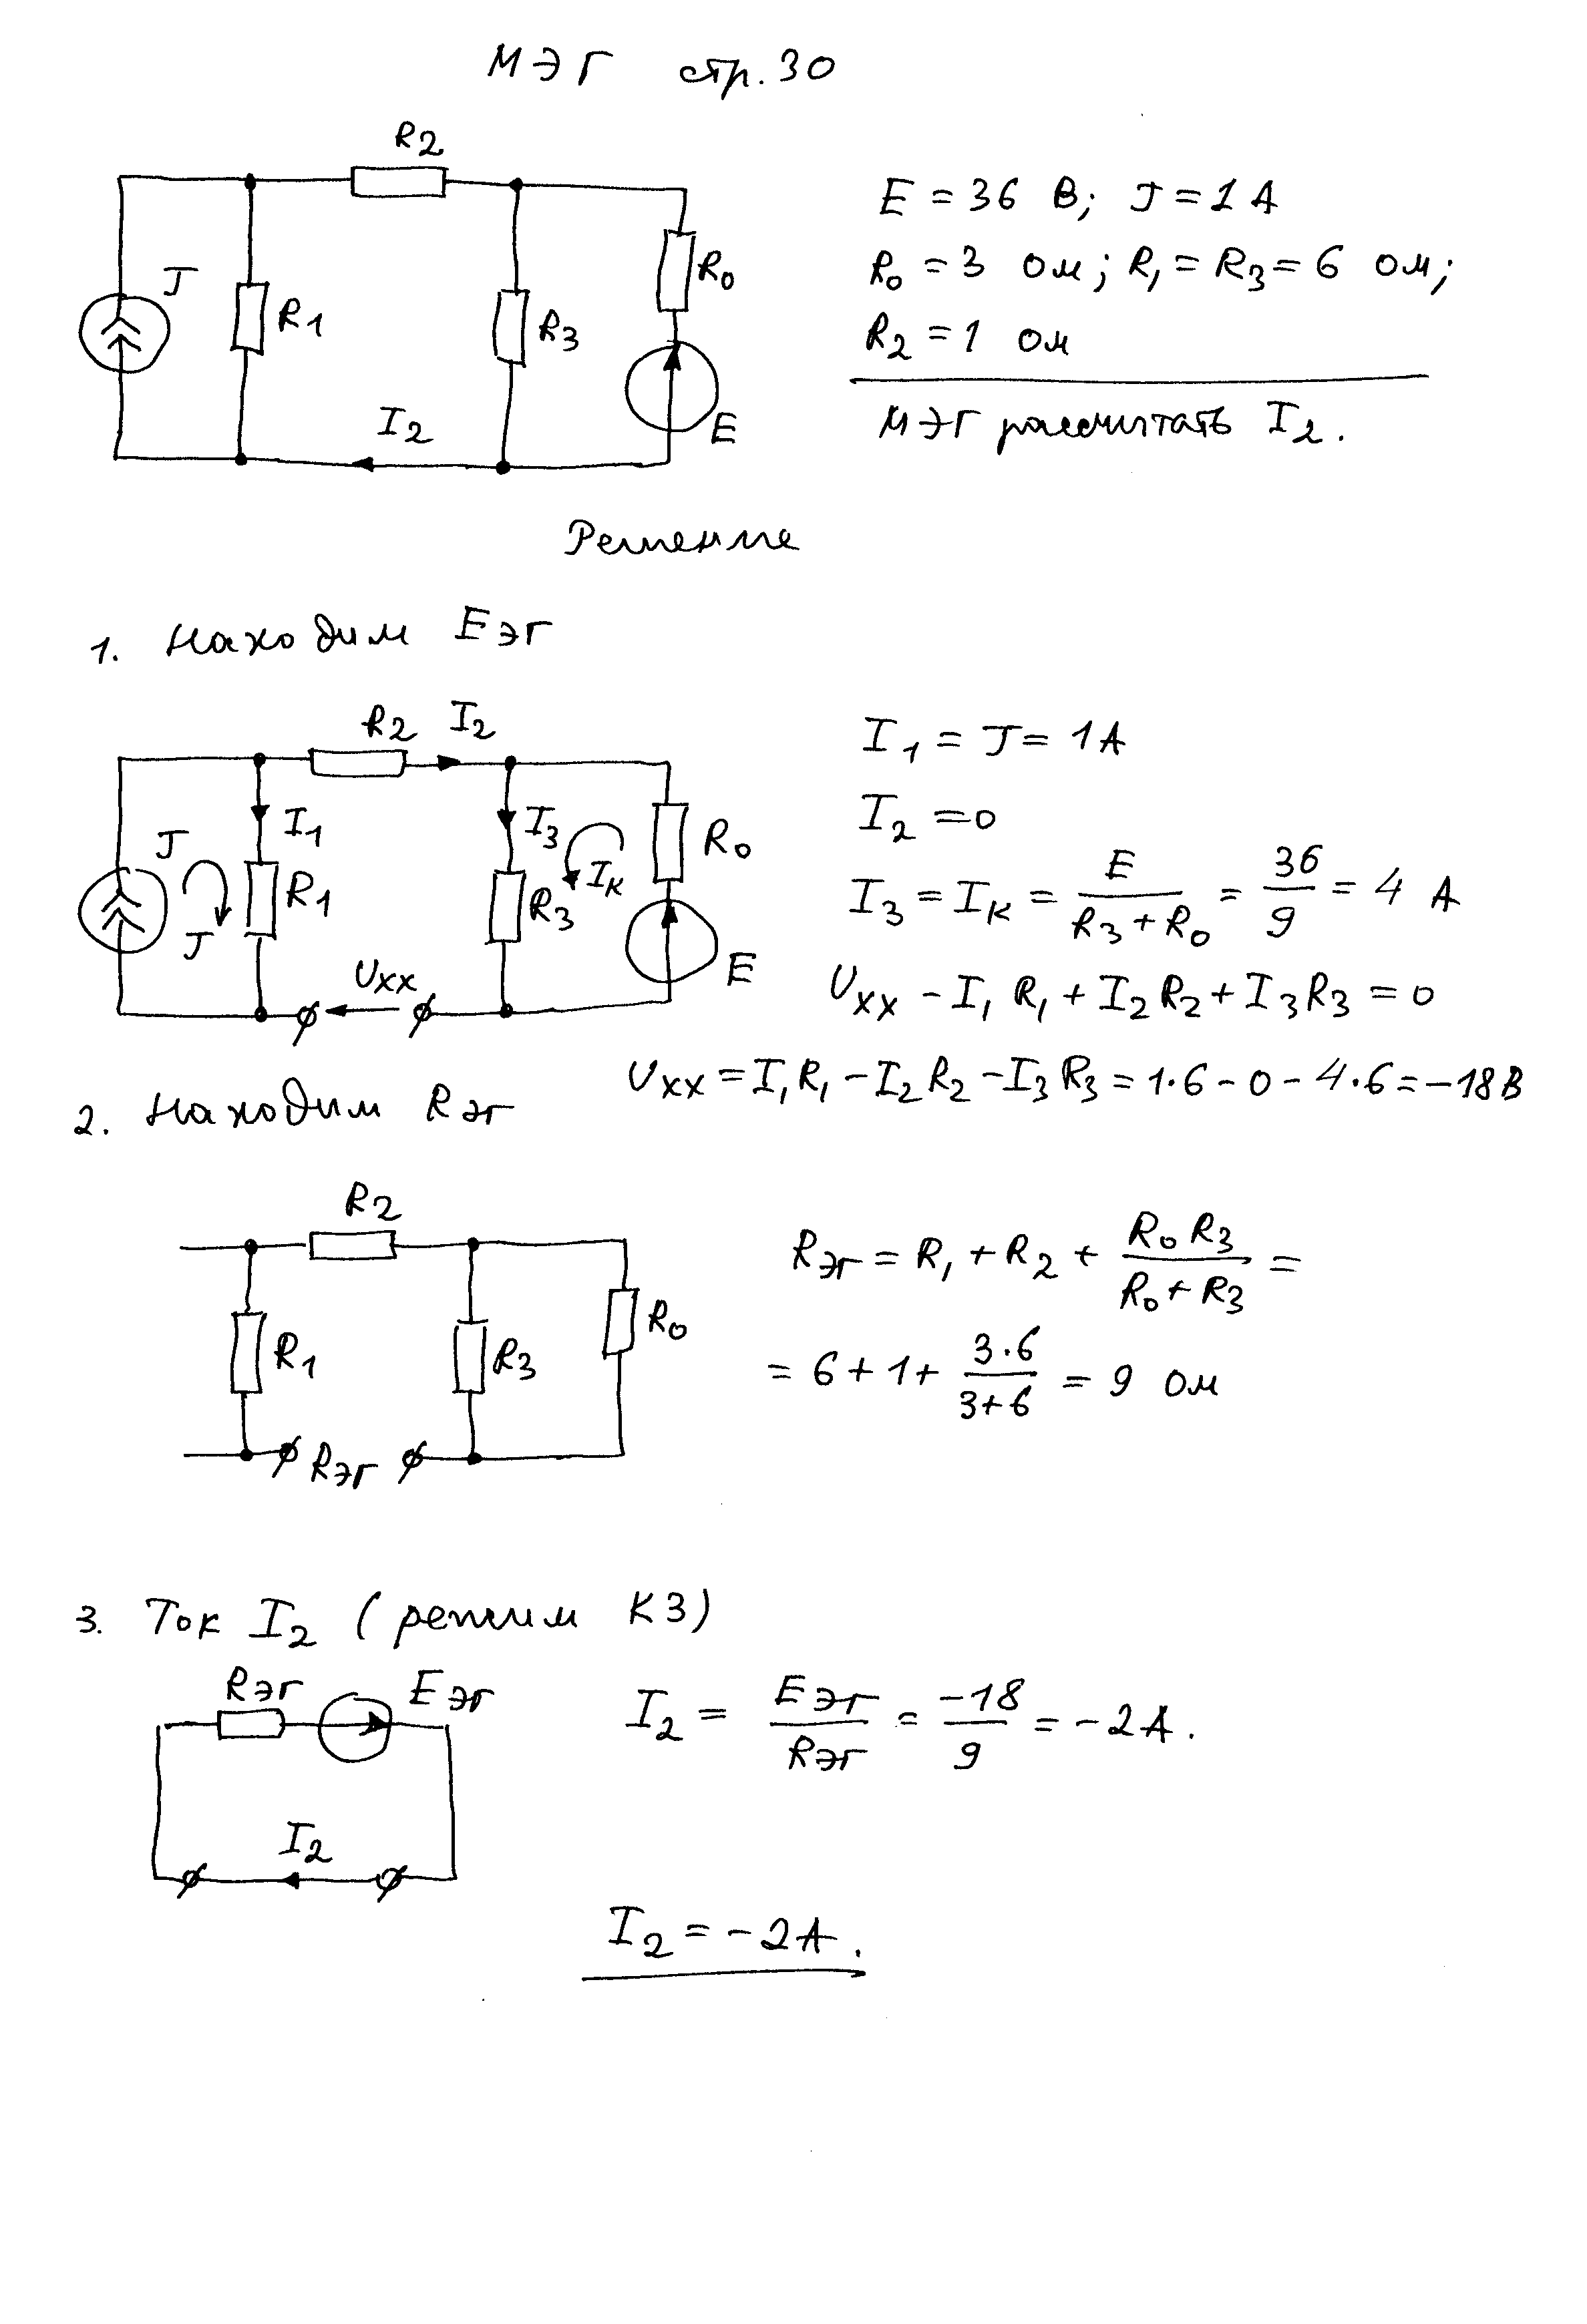 МЭГ стр. 30
R2
J
R1
R3
R0
I2
E
E = 36 В; J = 1 А
R0 = 3 Ом; R1 = R3 = 6 Ом;
R2 = 1 Ом
МЭГ рассчитать I2.
Решение
1. Находим Eэг
R2 I2
J
I1
R1
J
I3
Iк
R3
R0
E
Uхх
I1 = J = 1А
I2 = 0
I3 = Iк = E / (R3 + R0) = 36 / 9 = 4 А
Uхх - I1 R1 + I2 R2 + I3 R3 = 0
Uхх = I1 R1 - I2 R2 - I3 R3 = 1·6 - 0 - 4·6 = -18В
2. Находим Rэг
R2
R1
R3
R0
Rэг
Rэг = R1 + R2 + R0 R3 / (R0 + R3) =
= 6 + 1 + 3·6 / (3+6) = 9 Ом
3. Ток I2 (режим КЗ)
Rэг Eэг
I2
I2 = Eэг / Rэг = -18 / 9 = -2А.
I2 = -2А.